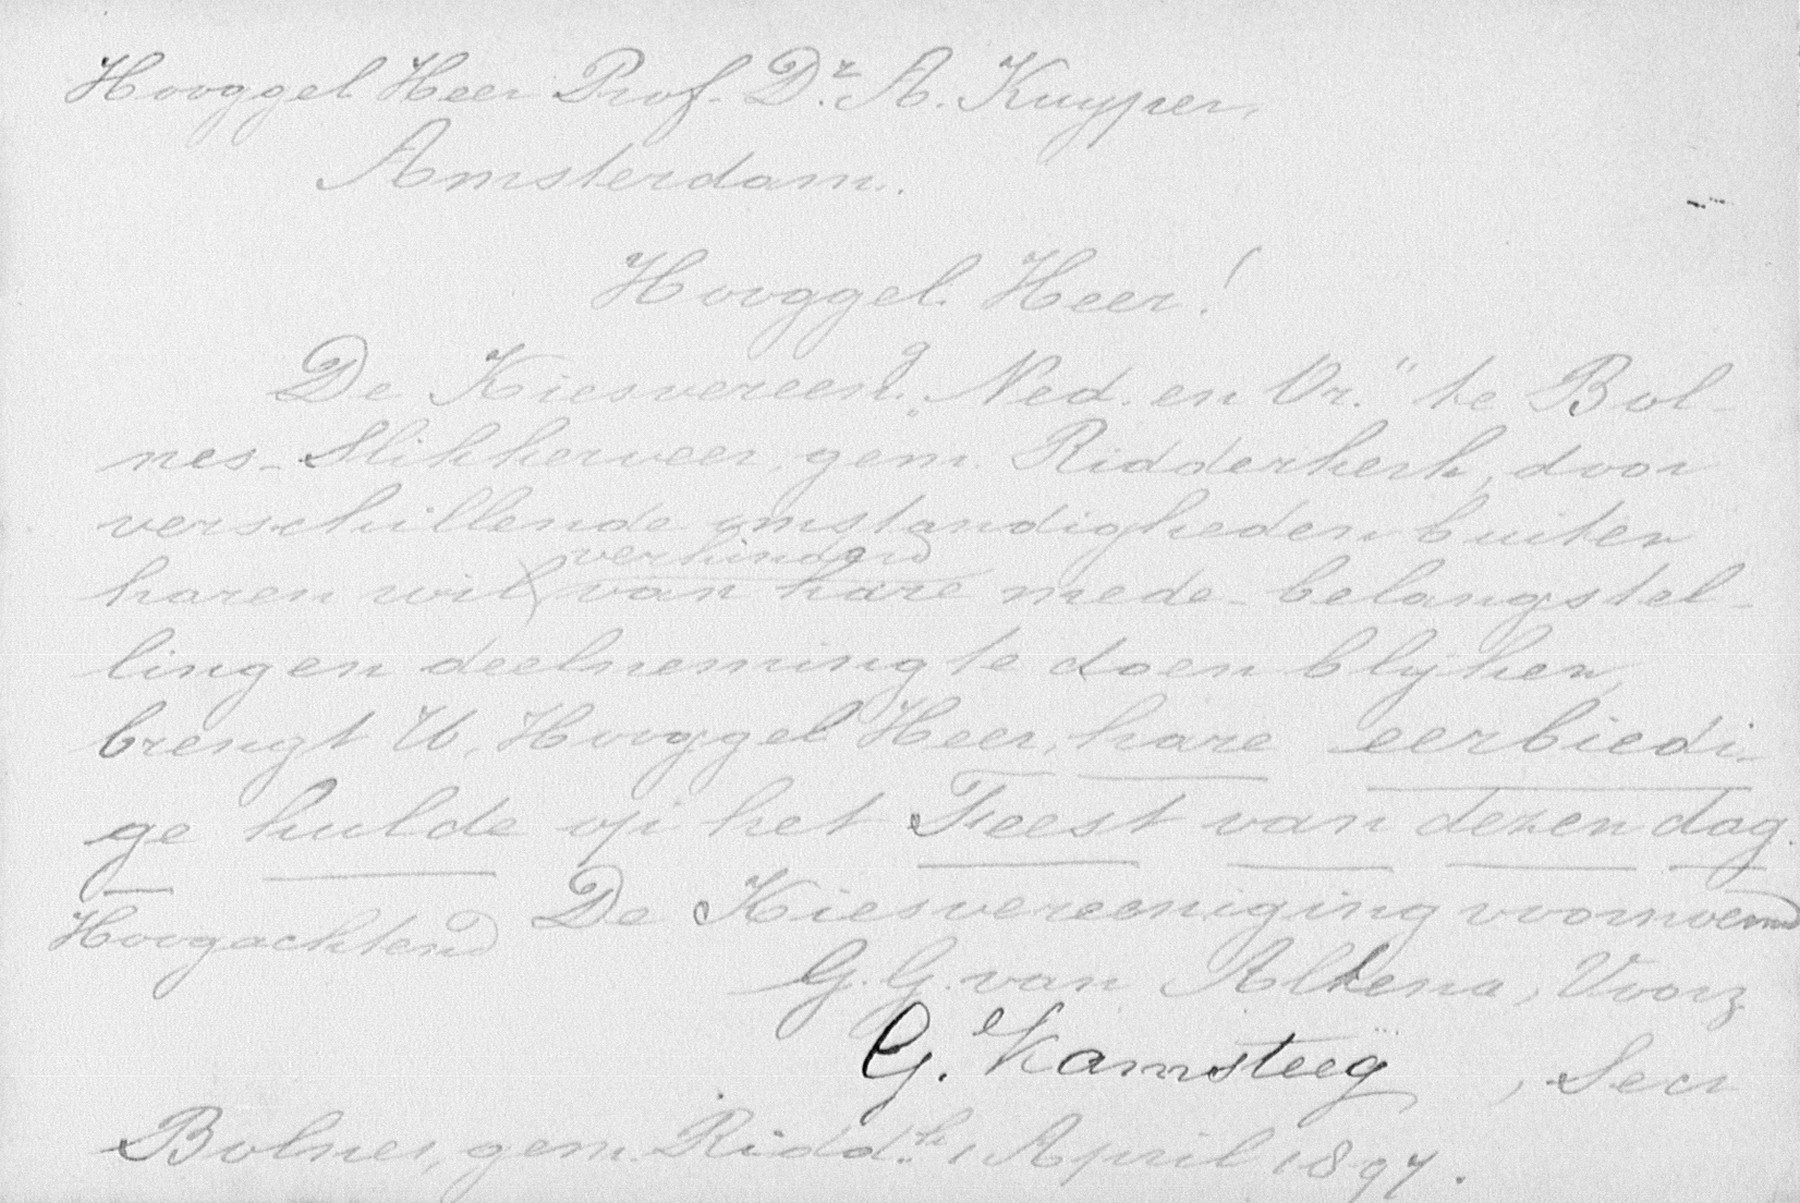 Hooggel. Heer Prof. Dr. A. Kuyper,
Amsterdam.
Hooggel. Heer!
De Kiesvereen.g „Ned. en Or." te Bol-
nes-Slikkerveer, gem. Ridderkerk, door
verschillende omstandigheden buiten
verhinderd
haren wil van hare mede-belangstel-
ling en deelneming te doen blijken,
brengt U, Hooggel Heer, hare eerbiedi-
ge hulde op het Feest van dezen dag.
Hoogachtend De Kiesvereeniging voornoemd
G. G. van Altena, Voorz
G. Kamsteeg, Secr
Bolnes, gem. Ridd.k, 1 April 1897.